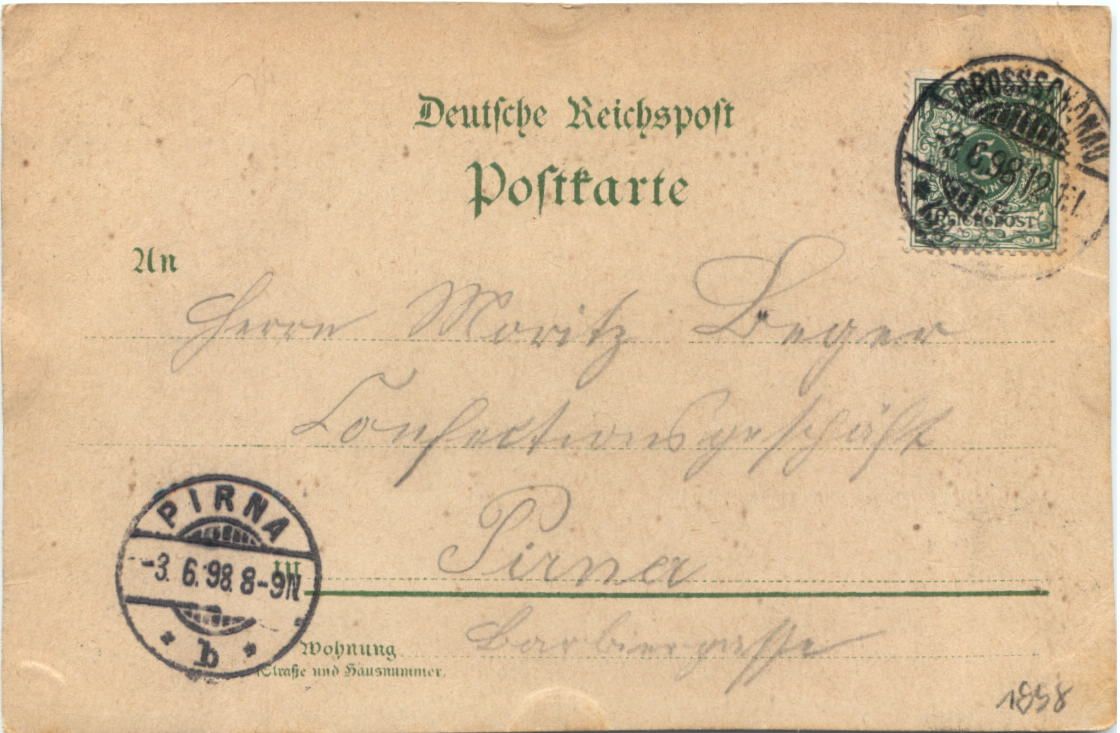 Deutsche Reichspost
Postkarte
GROSSSCHÖNAU
-3.6.98.12
5
REICHSPOST
An
Herrn Moritz Beger
Confectionsgeschäft
Pirna
PIRNA
-3.6.98.8-9N
b
in
Barbiergasse
Wohnung
(Straße und Hausnummer)
1898